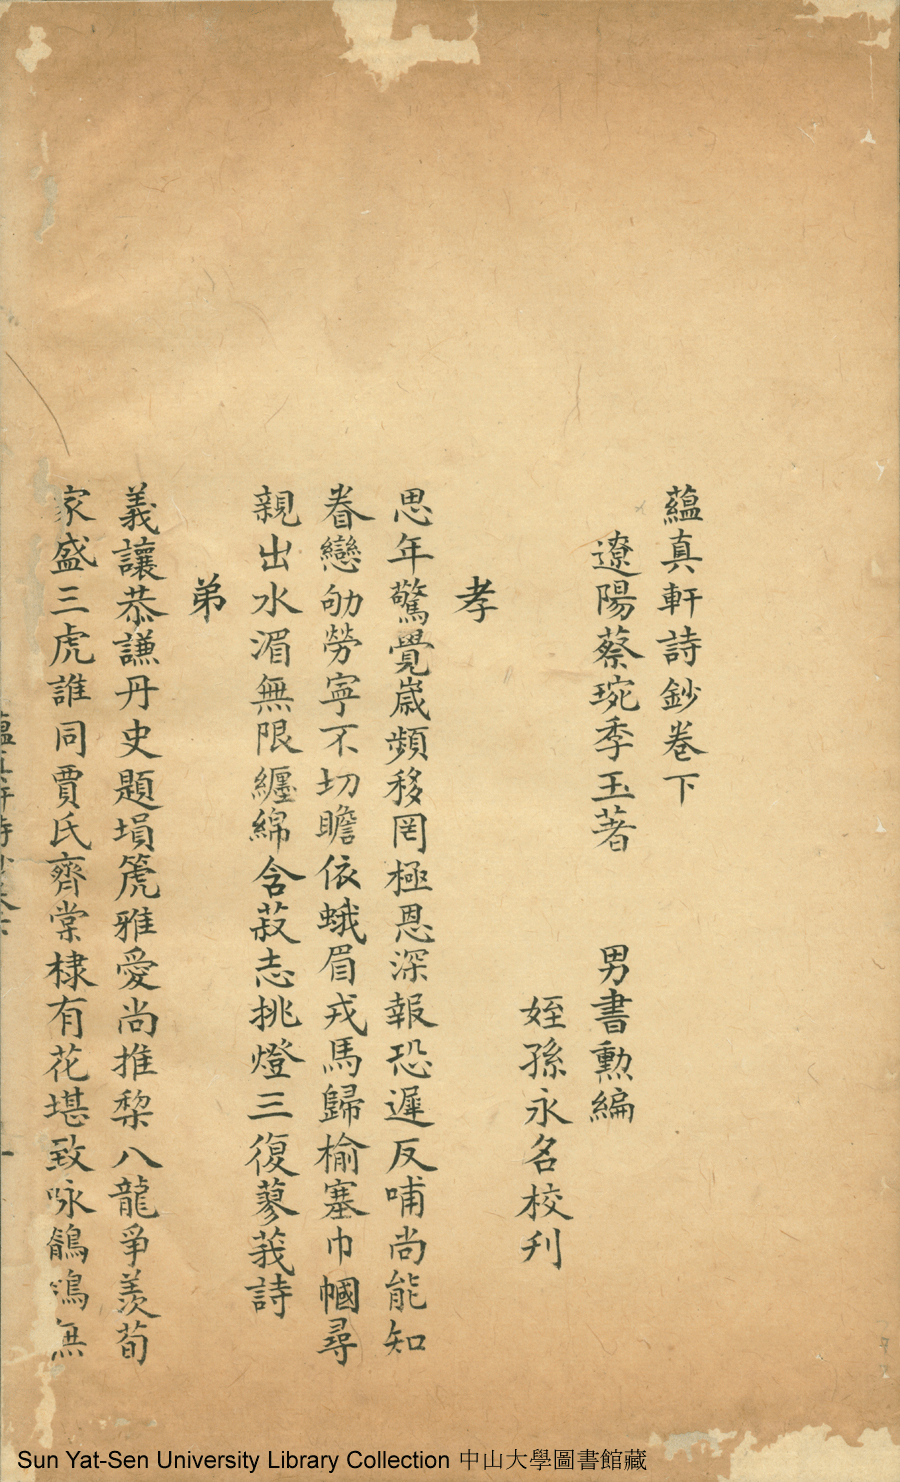 蘊真軒詩鈔卷下
遼陽蔡琬季玉著　男書勲編
姪孫永名校刋
孝
思年驚覺嵗頻移罔極恩深報恐遲反哺尚能知
眷戀劬勞寜不切瞻依蛾眉戎馬歸榆塞巾幗尋
親出水湄無限纒綿含菽志挑燈三復蓼莪詩
弟
義讓恭謙丹史題塤箎雅愛尚推棃八龍爭羨荀
家盛三虎誰同賈氏齊棠棣有花堪致咏鶺鴒無
Sun Yat-Sen University Library Collection 中山大學圖書館藏